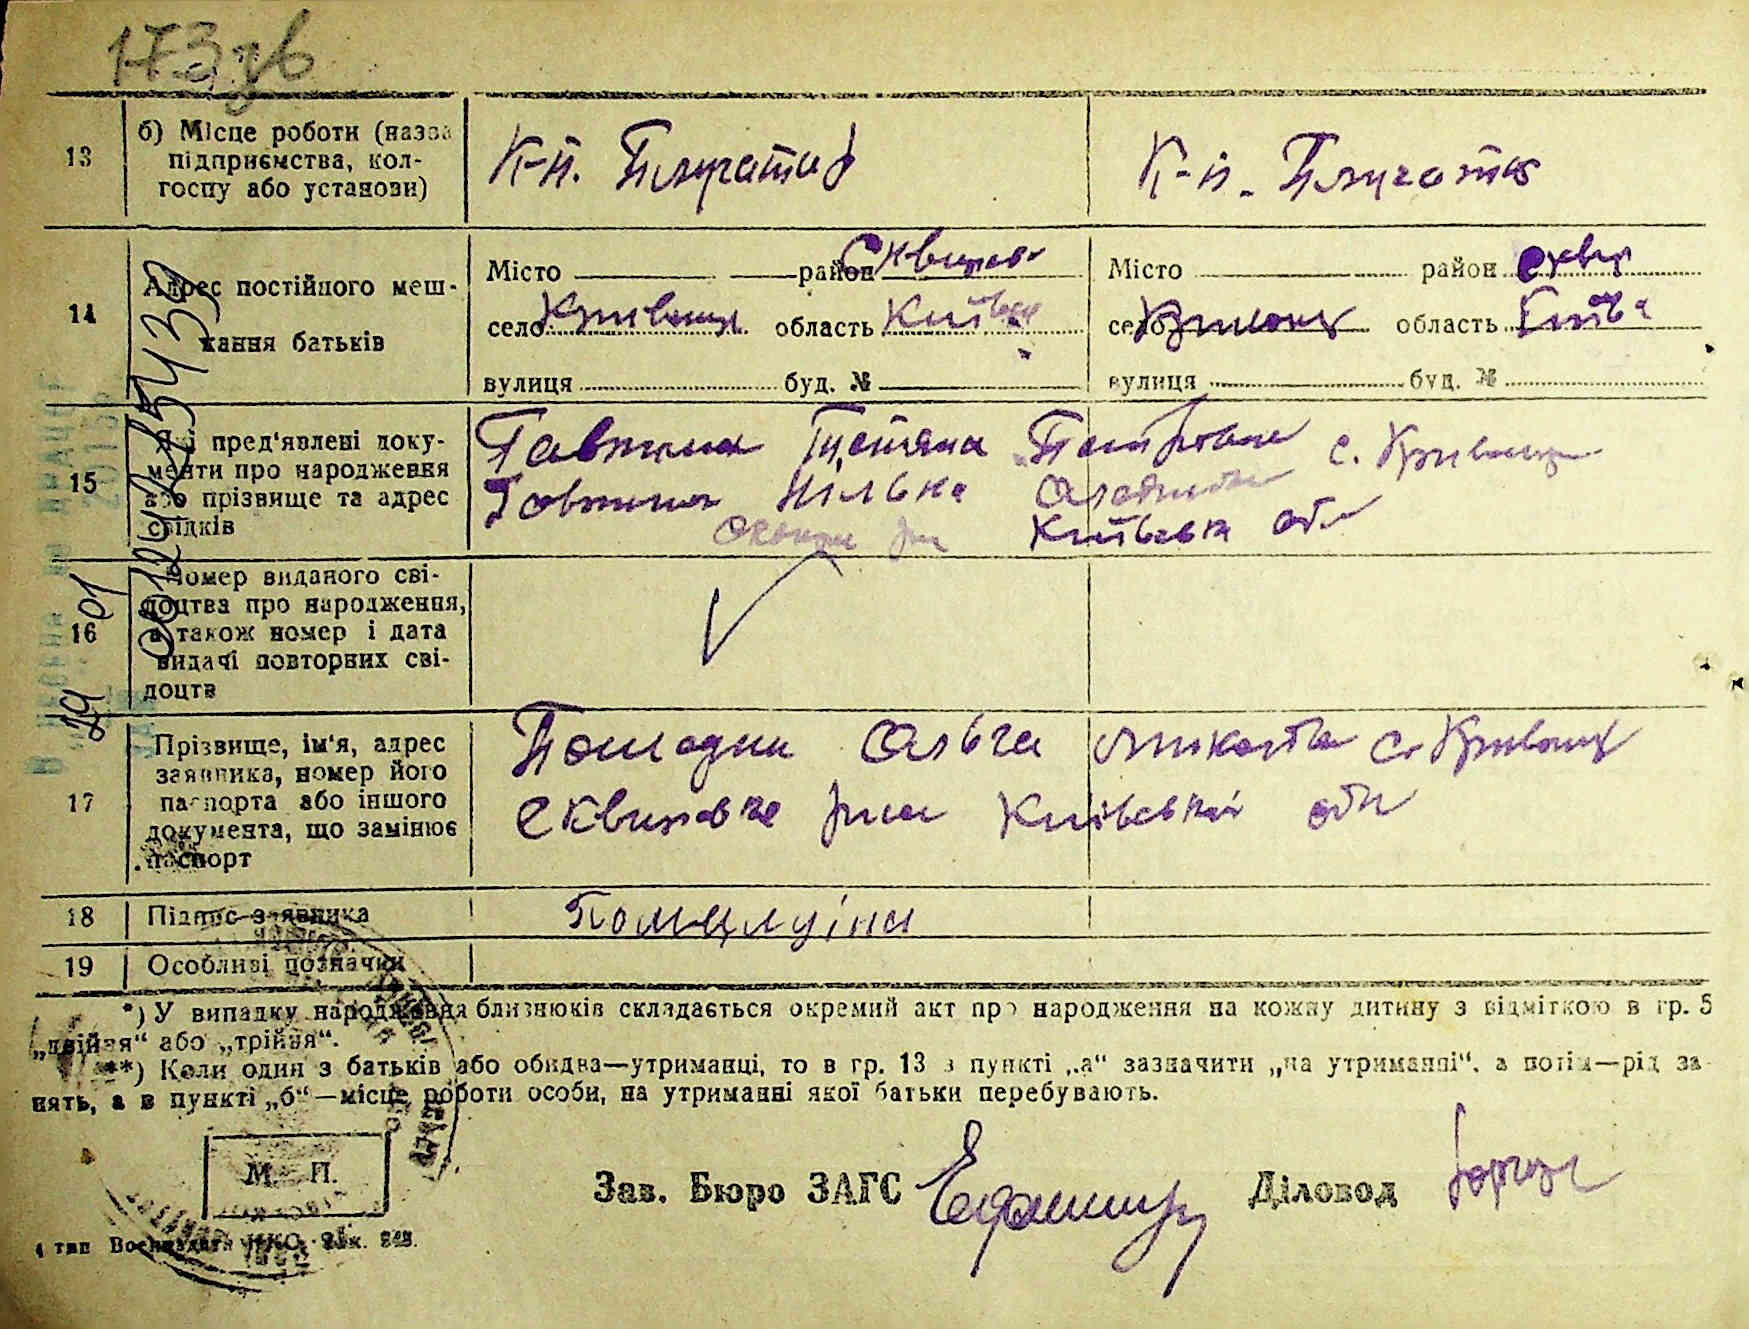 173 зв
13
б) Місце роботи (назва
підприємства, кол-
госпу або установи)
К-п. Плугатар
К-п. Плугатар
14
Адрес постійного меш-
кання батьків
Місто район Сквирсь
село Кривошиї область Київськ
вулиця буд. №
Місто район Сквир
село Кривошиї область Київ
вулиця буд. №
15
Які пред'явлені доку-
менти про народження
або прізвище та адрес
свідків
Тетяна Петрівна с. Кривошиї
Київська обл
16
Номер виданого сві-
доцтва про народження,
а також номер і дата
видачі повторних сві-
доцтв
17
Прізвище, ім'я, адрес
заявника, номер його
паспорта або іншого
документа, що замінює
паспорт
Ольга с. Кривошиї
Сквирське р-ну Київської обл
18
Підпис заявника
19
Особливі позначки
*) У випадку народження близнюків складається окремий акт про народження на кожну дитину з відміткою в гр. 5
„двійня“ або „трійня“.
**) Коли один з батьків або обидва—утриманці, то в гр. 13 в пункті „а“ зазначити „на утриманні“, а потім—рід за-
нять, а в пункті „б“—місце роботи особи, на утриманні якої батьки перебувають.
М. П.
Зав. Бюро ЗАГС
Діловод